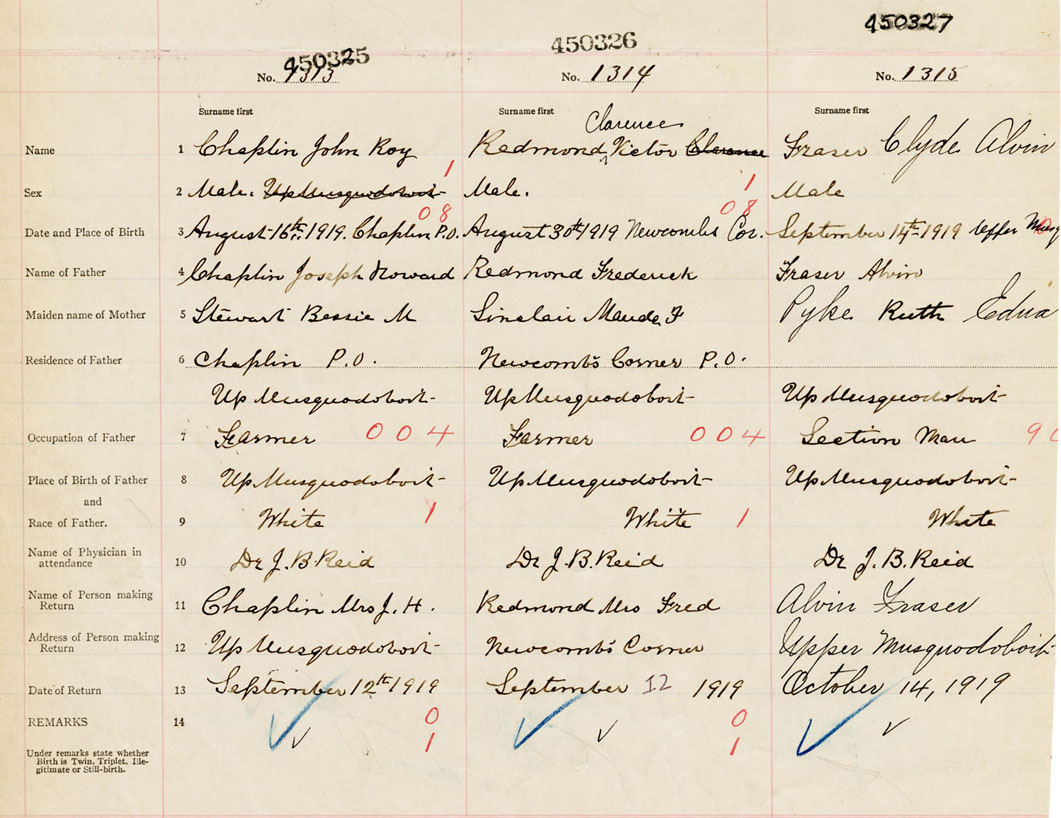 450325 450326 450327
No. 1313 No. 1314 No. 1315
Surname first Surname first Surname first
Clarence
Name 1 Chaplin John Roy Redmond Victor Clarence Fraser Clyde Alvin
1
Sex 2 Male. Up Musquodoboit Male. 1 Male
08 08
Date and Place of Birth 3 August 16th 1919. Chaplin P.O. August 30th 1919 Newcombs Cor. September 14th 1919 Upper
Name of Father 4 Chaplin Joseph Howard Redmond Frederick Fraser Alvin
Maiden name of Mother 5 Stewart Bessie M Sinclair Maude F Pyke Ruth Edna
Residence of Father 6 Chaplin P.O. Newcomb's Corner P.O.
Up Musquodoboit Up Musquodoboit Up Musquodoboit
Occupation of Father 7 Farmer 004 Farmer 004 Section Man 90
Place of Birth of Father 8 Up Musquodoboit Up Musquodoboit Up Musquodoboit
and
Race of Father. 9 White 1 White 1 White
Name of Physician in
attendance 10 Dr J.B. Reid Dr J.B. Reid Dr J.B. Reid
Name of Person making
Return 11 Chaplin Mrs J. H. Redmond Mrs Fred Alvin Fraser
Address of Person making
Return 12 Up Musquodoboit Newcomb's Corner Upper Musquodoboit
Date of Return 13 September 12th 1919 September 12 1919 October 14, 1919
REMARKS 14 0 0
Under remarks state whether 1 1
Birth is Twin, Triplet, Ille-
gitimate or Still-birth.